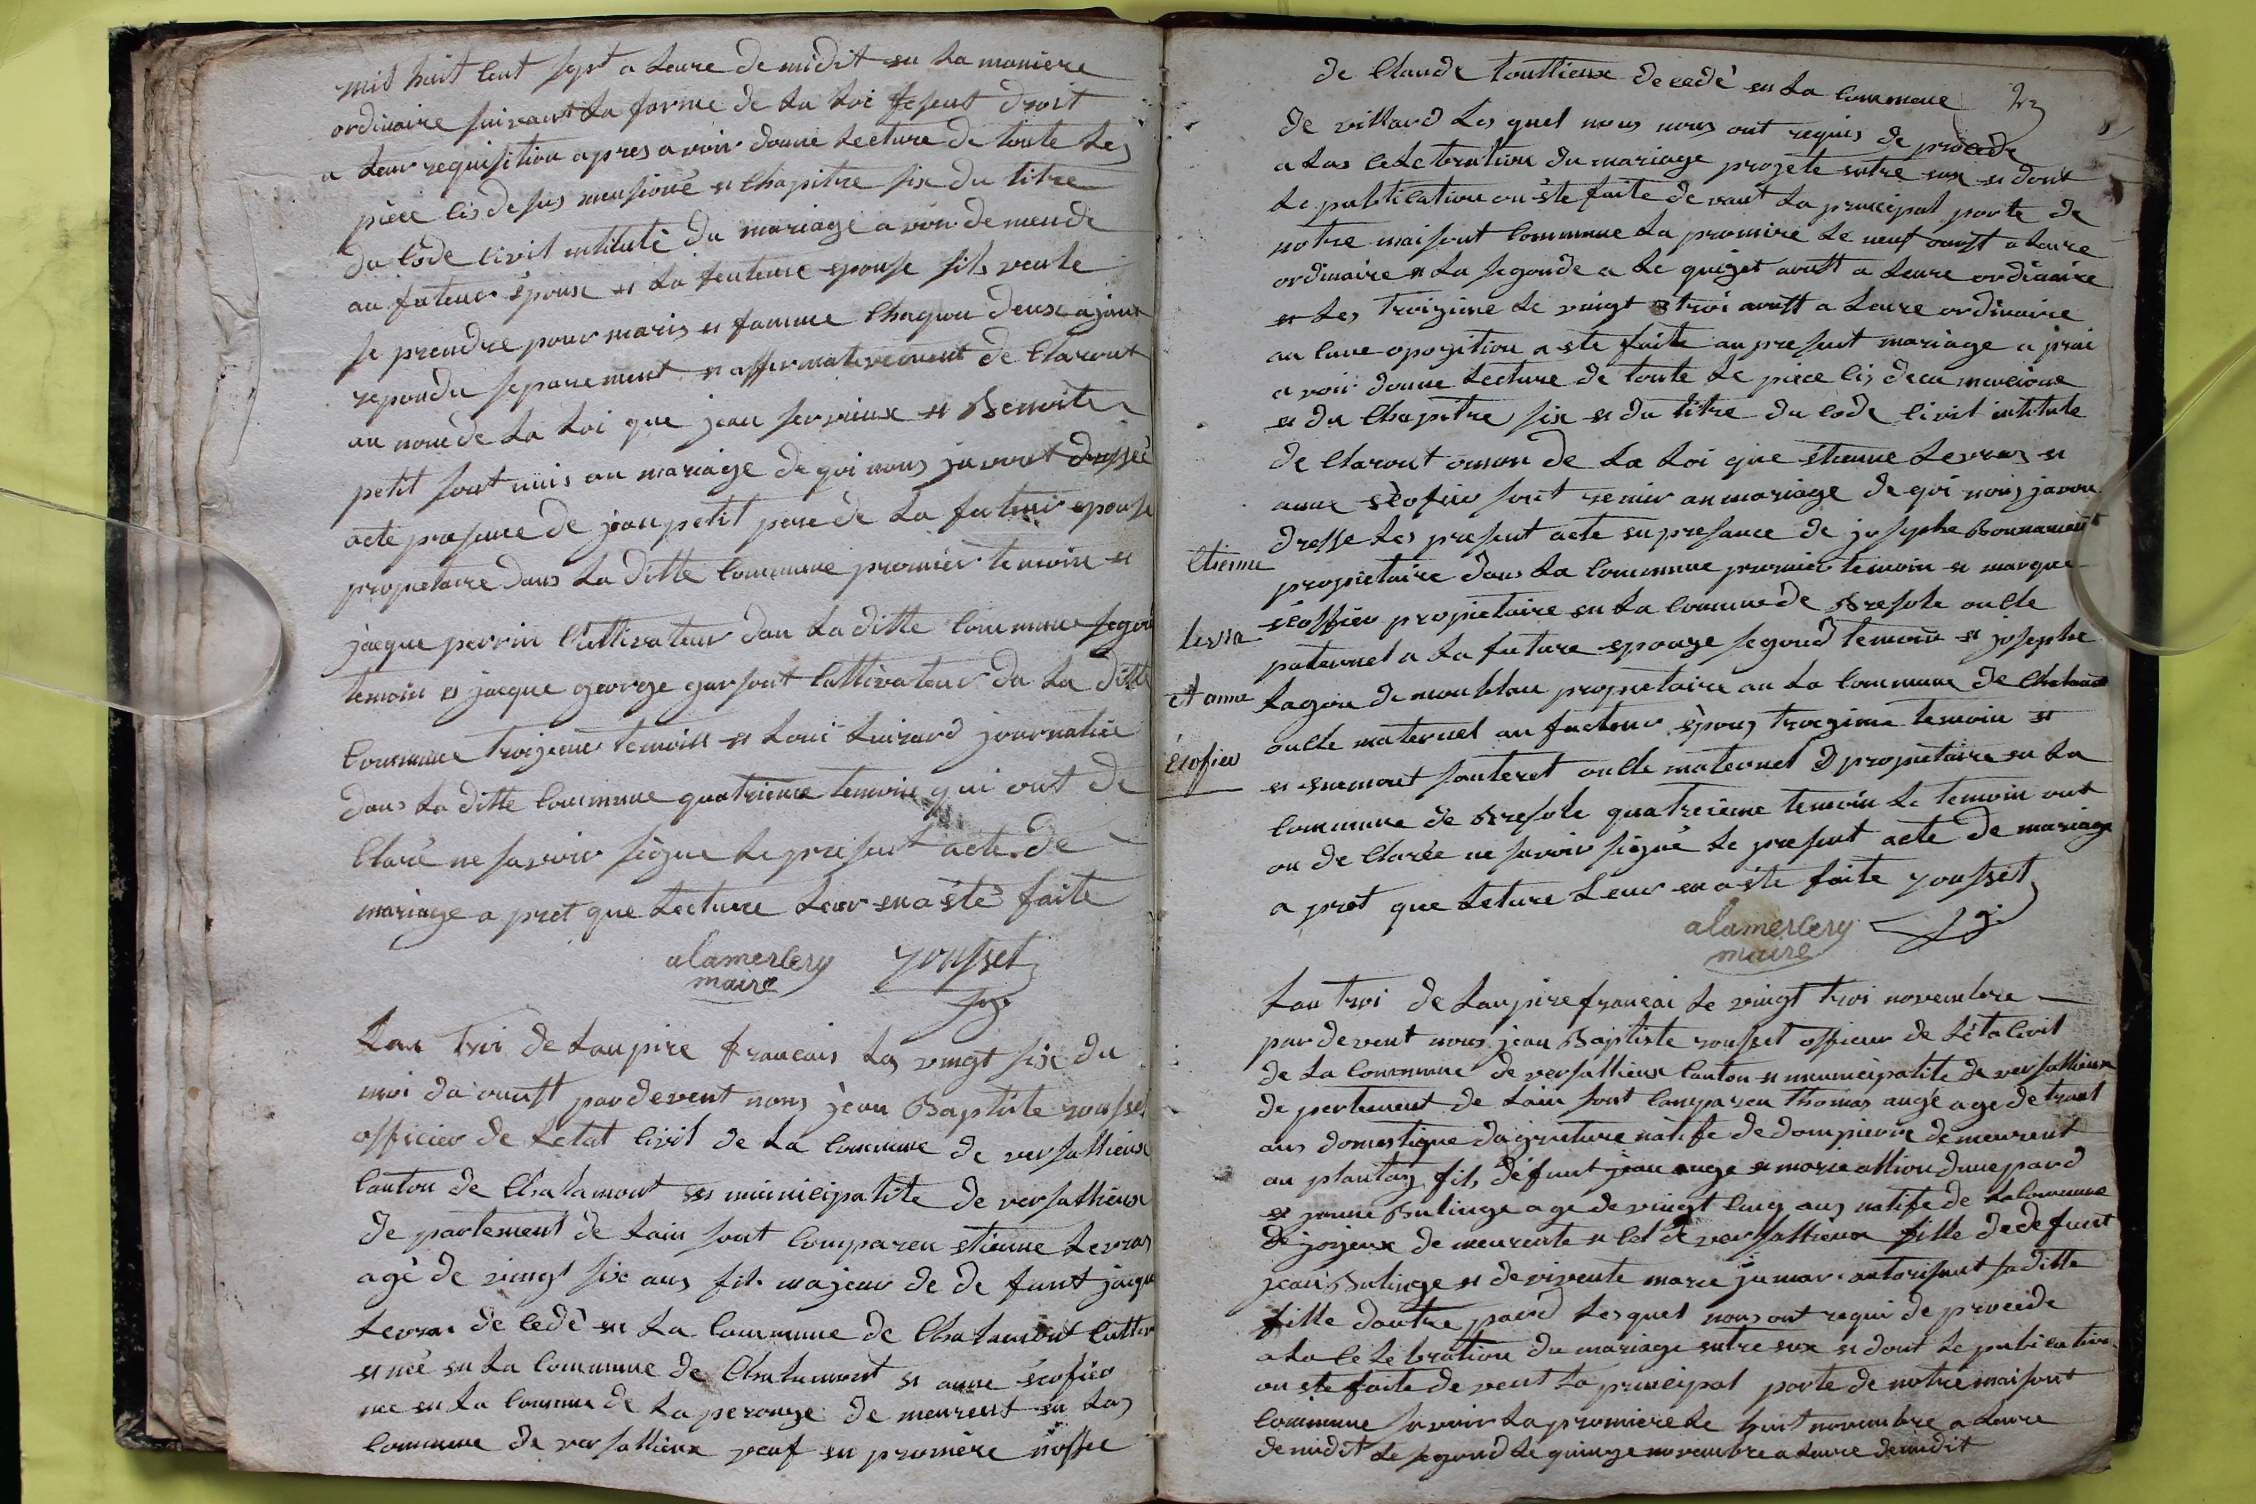 mil huit cent sept a leure de midit en la maniere
ordinaire suivant la forme de la loi fesent droit
a leur requisition apres avoir donne lecture de toute les
piece cis desus mensioné et chapitre six du titre
du code civil intitulé du mariage avoir demende
au futeur épouse et la feuteure epouse sils veule
se prendre pour maris et famme chaqun deux ajant
repondu separement et affirmativement de claront
au nom de la loi que jean servieux et Benoite
petit sont unis au mariage de qoi nous javont dressé
acte presence de jean petit pere de la futeur epouse
propietaire dans la ditte commune promier temoin et
jacque perrin cultivateur dan la ditte commune segon
temoin et jacque george garsont cultivateur da la ditte
commune troizieme temoin et loui luirard journalié
dans la ditte commune quatrieme temoin qui ont de
claré ne savoir signe le present acte de
mariage a pret que lecture leur en a été faite
alamercery rousset
maire
Lan troi de lanpire francais les vingt six du
moi da oustt pardevent nous jean Baptiste rousset
officier de letat civil de la commune de versallieux
canton de Chalamont et municipalite de versallieux
de partement de lain sont comparen etienne levras
agé de vingt six ans fils majeur de de funt jaque
levra de cedé en la commune de Chalamont
et née en la commune de Chalamont et anne écofier
nee en la commune de la perouze de meurent en las
commune de versallieux veuf en promière nosse
de Claude touttieux decedé en la commune
de villard les quel nous nous ont requis de procede
a las celebration du mariage projete entre eux et dont
le publication on éte faite devant la principal porte de
notre maisont commune la promire le neuf oustt a leure
ordinaire et la segonde a le quizet oustt a leure ordinaire
et les troizime le vingt troi oustt a leure ordinaire
au cune opozition a ete faite au present mariage a prai
a voir donne lecture de toute le piece cis deca mencione
et du Chapitre six et du titre du code civil intitule
de claront onon de la loi que etienne levras et
anne écofier sont re nir au mariage de qoi nous javon
dresse les present acte en presance de josephe Bonnamour
propietaire dans la commune promier temoin et marque
écoffier propietaire en la commune de Bresole oncle
paternel a la future epouze segond temoin et josephe
propietaire au la commune de
oncle maternel au futeur épous troizime temoin et
et enemont sauteret oncle maternel et propietaire en la
commune de Bresole quatreieme temoin le temoin ont
on de clarée ne savoir signé le present acte de mariage
a prêt que leture leur en a éte faite rousset
alamercery
maire
Etienne
levra
et anne
écofier
Lan troi de lanpire francai le vingt troi novembre
par devent nous jean Baptiste rousset officier de létat civil
de la commune de versallieux canton et municipalite de versallieux
de partement de lain sont comparen thomas augé age de trant
ans domestique dagriceture natife de dompierre demeurent
au plantay fils défunt jean auge et marie allion dune pard
et jeanne Bulinge age de vingt cinq ans natife de la commune
de joyeux de meurente a cel de versallieux fille de de funt
jean Bulinge et de vivente marie jumar autorisent sa ditte
fille dautre pard lesquel nous ont requi de procede
a la celebration du mariage entre eux et dont le publication
on ete faite de vent la principal porte de notre maisont
commune savoir la promiere le huit novembre a leure
de midit le segond le quinze novembre a leure de midit